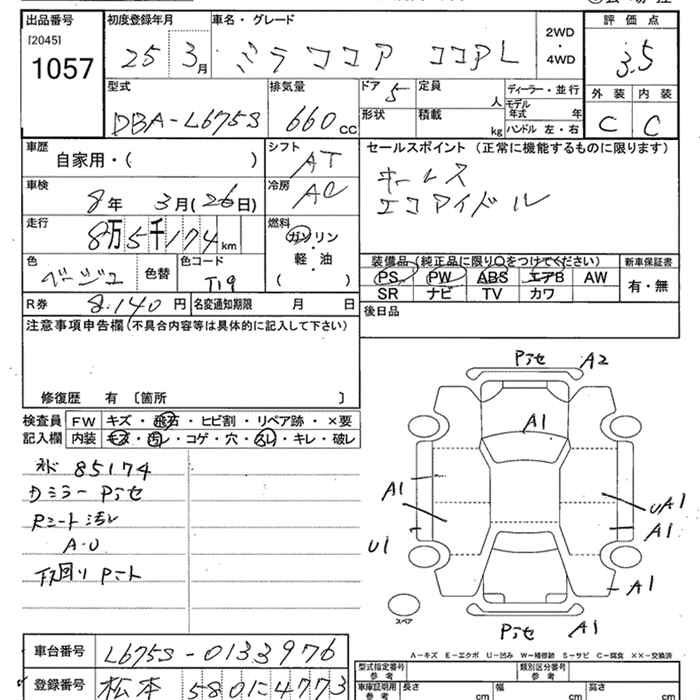 出品番号 初度登録年月 車名・グレード 評価点
[2045]
1057 25 3月 ミラココア ココアL 2WD・4WD 3.5
外装 内装
C C
型式 排気量 ドア 定員 ディーラー・並行
DBA-L675S 660 CC 5 人 モデル年式 年
形状 積載 kg ハンドル 左・右
車歴 シフト セールスポイント (正常に機能するものに限ります)
自家用・( ) AT キーレス
車検 冷房 エコアイドル
8年 3月(26日) AC
走行 燃料
8万5千174km ガソリン・軽油
( )
色 色替 色コード
ベージュ T19
装備品(純正品に限り○をつけてください) 新車保証書
PS PW ABS エアB AW 有・無
SR ナビ TV カワ
R券 8.140円 名変通知期限 月 日 後日品
注意事項申告欄(不具合内容等は具体的に記入して下さい)
修復歴 有 〔箇所 〕
検査員 FW キズ・飛石・ヒビ割・リペア跡・×要
記入欄 内装 キズ・汚レ・コゲ・穴・スレ・キレ・破レ
85174
Pキセ A2
A1
Rシート汚レ
A1
UA1
A1
U1
A1
スペア
Pキセ A1
A-キズ E-エクボ U-凹み W-補修跡 S-サビ C-腐食 XX-交換済
車台番号 L675S-0133976
登録番号 松本 580に4773
型式指定番号 参考 類別区分番号 参考
車庫証明用 参考 長さ cm 幅 cm 高さ cm